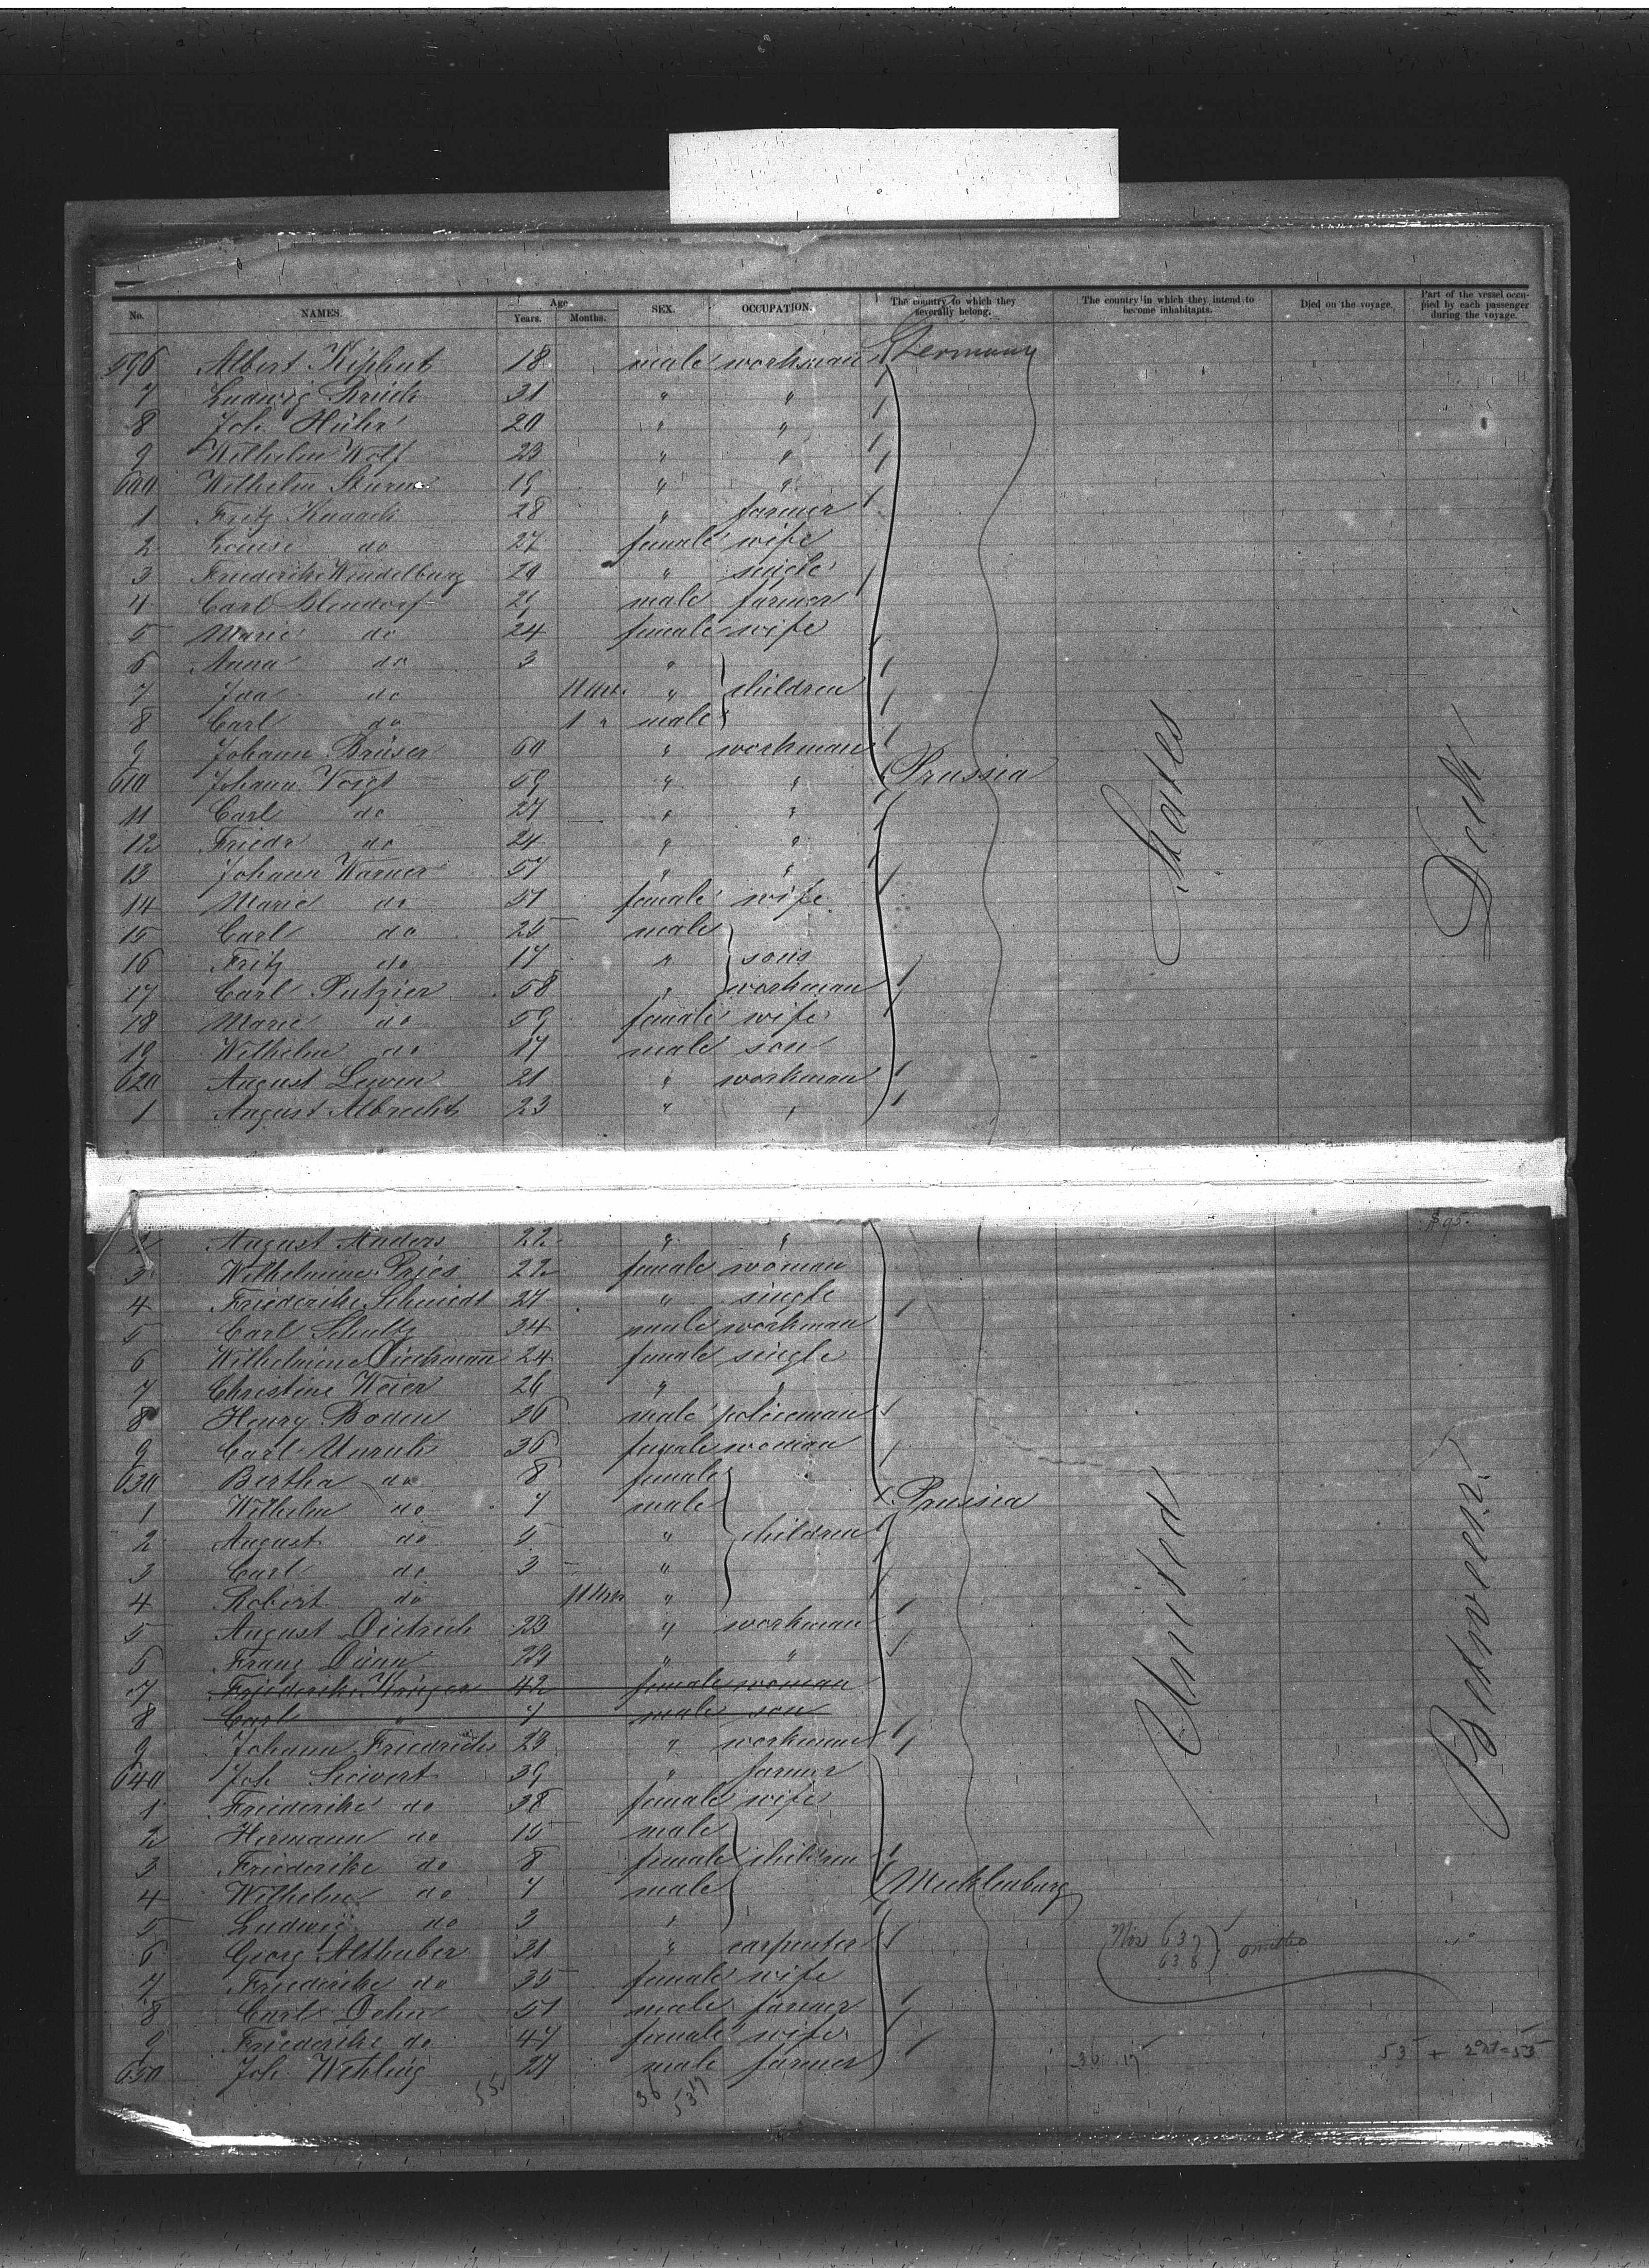 No. NAMES. Age Years. Months. SEX. OCCUPATION. The country to which they severally belong. The country in which they intend to become inhabitants. Died on the voyage. Part of the vessel occupied by each passenger during the voyage.
596 Albert Kiphut 18 male workman Germany
7 Ludwig Brück 31 " "
8 Joh. Hühr 20 " "
9 Wilhelm Wolf 23 " "
600 Wilhelm Sturm 19 " "
1 Fritz Knaack 28 " farmer
2 Louise do 27 female wife
3 Friederike Wendelburg 20 " single
4 Carl Blendorf 29 male farmer
5 Marie do 24 female wife
6 Anna do 3 "
7 Ida do 11 mts. " children
8 Carl do 1 " male
9 Johann Brüser 60 " workman
610 Johann Voigt 59 " " Prussia
11 Carl do 27 " "
12 Friedr do 24 " "
13 Johann Warner 57 " "
14 Marie do 51 female wife
15 Carl do 25 male
16 Fritz do 17 " sons
17 Carl Putzier 58 " workman
18 Marie do 59 female wife
19 Wilhelm do 17 male son
620 August Lewin 21 " workman
1 August Albrecht 23 " "
2 August Anders 22 " "
$95.
3 Wilhelmine Pries 22 female woman
4 Friederike Schmidt 27 " single
5 Carl Schultz 34 male workman
6 Wilhelmine Dieckmann 24 female single
7 Christine Weier 26 " "
8 Henry Boden 36 male policeman
9 Carl Unruh 36 female woman
630 Bertha do 8 female
1 Wilhelm do 7 male Prussia
2 August do 5 " children
3 Carl do 3 "
4 Robert do 11 mts "
5 August Dietrich 23 " workman
6 Franz Dünn 29 " "
7 Friederike Krüger 42 female woman
8 Carl " 7 male son
9 Johann Friedrichs 23 " workman
640 Joh Sievert 39 " farmer
1 Friederike do 38 female wife
2 Hermann do 15 male
3 Friederike do 8 female children
4 Wilhelm do 7 male Mecklenburg
5 Ludwig do 3 "
6 Georg Althuber 31 " carpenter
7 Friederike do 35 female wife
8 Carl Dehn 51 male farmer
9 Friederike do 47 female wife
650 Joh. Wehling 27 male farmer
United States
Between Deck
Nos 637 638 omitted
36 17
53 + 2
36 17
53